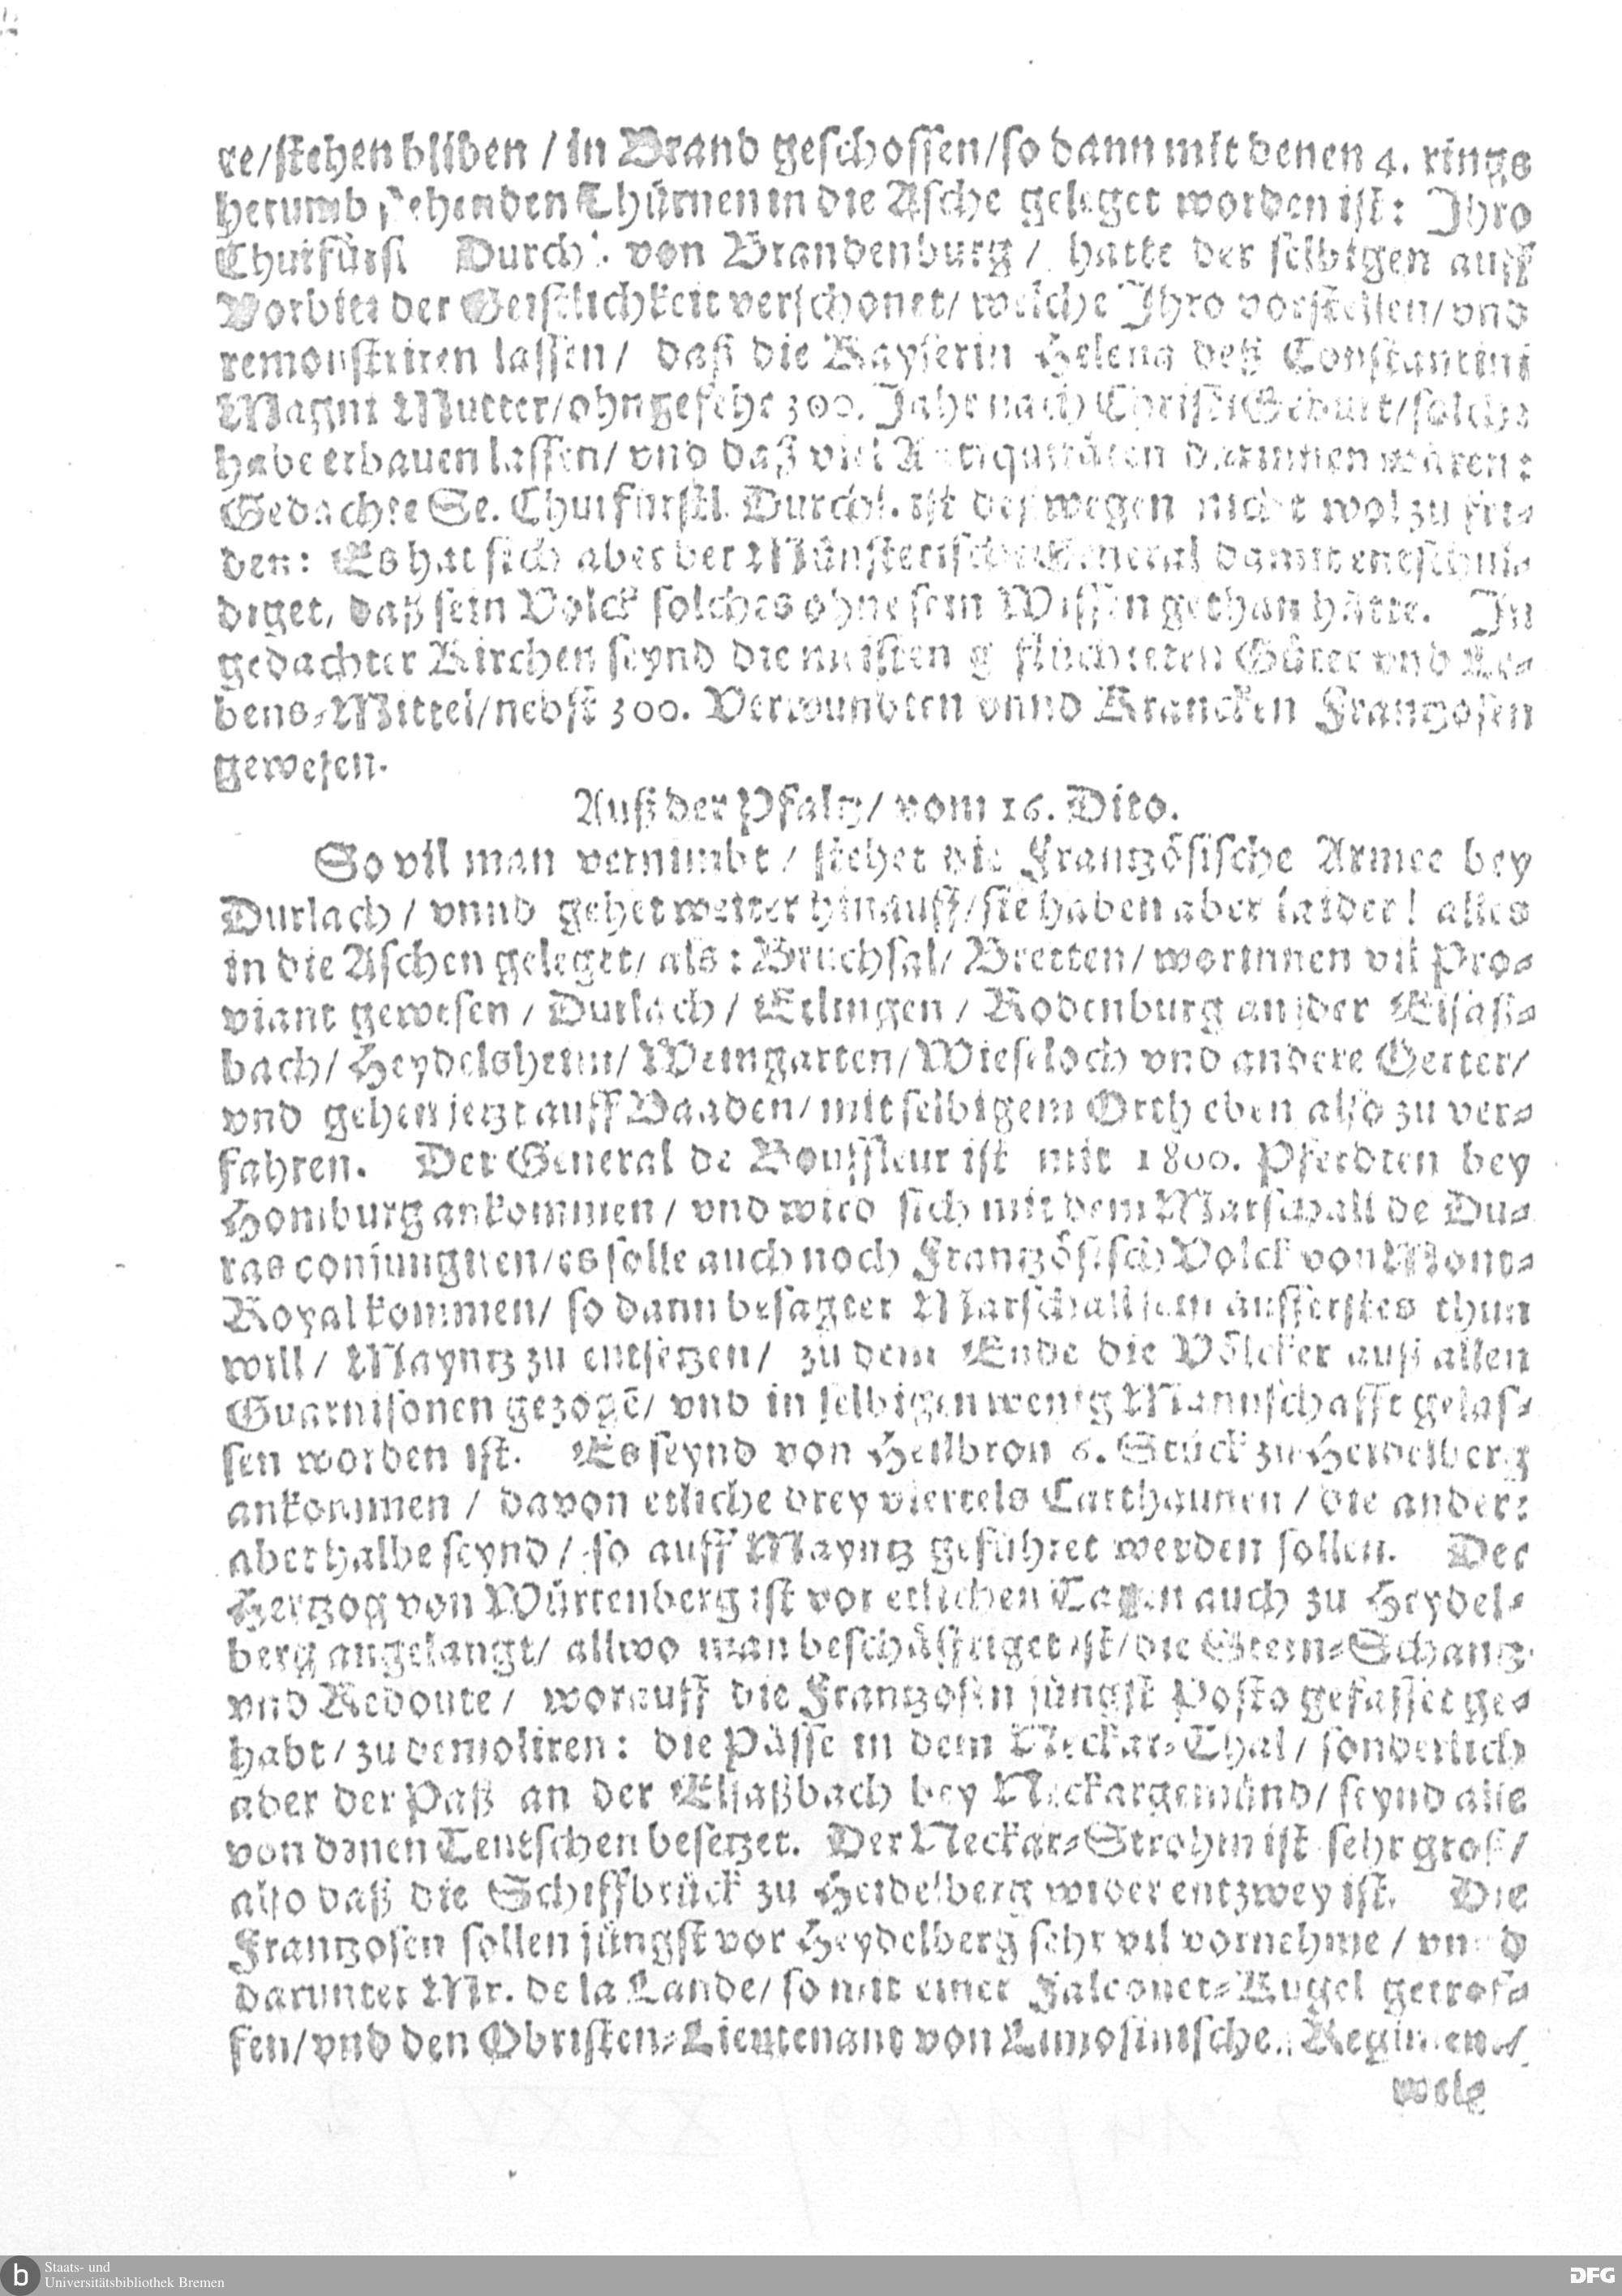 re/stehen bliben / in Brand geschossen/so dann mit denen 4. rings
herumb stehenden Thürnen in die Asche geleget worden ist: Ihro
Churfürstl Durchl. von Brandenburg / hatte der selbigen auff
Vorbitt der Geistlichkeit verschonet/ welche Ihro vorstellen/ vnd
remonstriren lassen/ daß die Kayserin Helena deß Constantini
Magni Mutter/ohngefehr 300. Jahr nach Christi Geburt/solche
habe erbauen lassen/ vnd daß viel Antiquitäten darinnen wären:
Gedachte Se. Churfürstl. Durchl. ist deßwegen nicht wol zu fri-
den: Es hat sich aber der Münsterische General damit entschul-
diget, daß sein Volck solches ohne sein Wissen gethan hätte. In
gedachter Kirchen seynd die meisten geflüchteten Güter vnd Le-
bens-Mittel/nebst 300. Verwundten vnnd Krancken Frantzosen
gewesen.
Auß der Pfaltz/ vom 16. Dito.
So vil man vernimbt / stehet die Frantzösische Armee bey
Durlach / vnnd gehet weiter hinauff/sie haben aber laider! alles
in die Aschen geleget/ als: Bruchsal/ Bretten/ worinnen vil Pro-
viant gewesen / Durlach / Etlingen / Rodenburg an der Elsaß-
bach/ Heydelsheim/ Weingarten/ Wiseloch vnd andere Oerter/
vnd gehen jetzt auff Baaden/ mit selbigem Orth eben also zu ver-
fahren. Der General de Bouffleur ist mit 1800. Pferdten bey
Homburg ankommen / vnd wird sich mit dem Marschall de Du-
ras conjungiren/es solle auch noch Frantzösisch Volck von Mont-
Royal kommen/ so dann besagter Marschall sein äusserstes thun
will / Mayntz zu entsetzen/ zu dem Ende die Völcker auß allen
Guarnisonen gezogē/ vnd in selbigen wenig Mannschafft gelas-
sen worden ist. Es seynd von Heilbron 6. Stück zu Heidelberg
ankommen / davon etliche drey viertels Carthaunen / die ander:
aber halbe seynd / so auff Mayntz geführet werden sollen. Der
Hertzog von Würtenberg ist vor etlichen Tagen auch zu Heydel-
berg angelangt/ allwo man beschäfftiget ist/die Stern-Schantz
vnd Redoute / worauff die Frantzosen jüngst Posto gefasset ge-
habt / zu demoliren: die Pässe in dem Neckar-Thal / sonderlich
aber der Paß an der Elsaßbach bey Neckargemünd/ seynd alle
von denen Teutschen besetzet. Der Neckar-Strohm ist sehr groß /
also daß die Schiffbrück zu Heidelberg wider entzwey ist. Die
Frantzosen sollen jüngst vor Heydelberg sehr vil vornehme / vnnd
darunter Mr. de la Lande/ so mit einer Falconet-Kugel getrof-
fen/vnd den Obristen-Lieutenant von Limosinischen Regiment/
wel-
Staats- und
Universitätsbibliothek Bremen
DFG